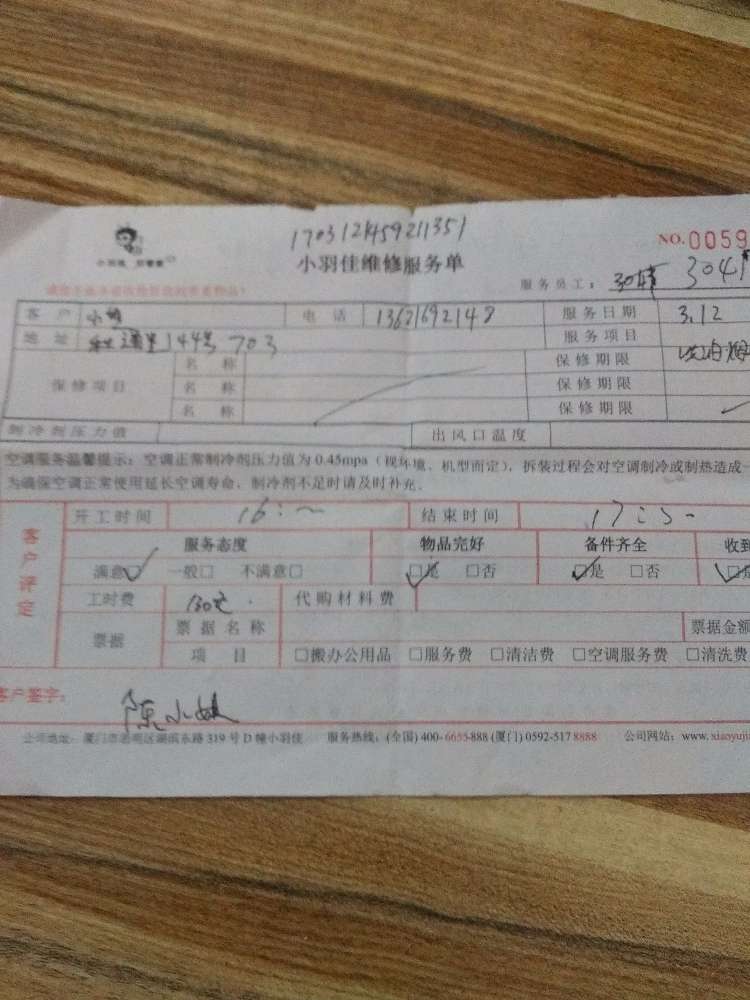 170312145921351
NO.0059
小羽佳维修服务单
服务员工： 3041
客户 小 电话 13621692148 服务日期 3.12
地址 144号703 服务项目
保修项目 名称 保修期限
名称 保修期限
名称 保修期限
制冷剂压力值 出风口温度
空调服务温馨提示：空调正常制冷剂压力值为0.45mpa（视环境、机型而定），拆装过程会对空调制冷或制热造成
为确保空调正常使用延长空调寿命，制冷剂不足时请及时补充。
客户评定
开工时间 16: 结束时间 17:
服务态度 物品完好 备件齐全 收到
满意☑ 一般□ 不满意□ ☑是 □否 ☑是 □否
工时费 130元. 代购材料费
票据 票据名称 票据金额
项目 □搬办公用品 □服务费 □清洁费 □空调服务费 □清洗费
客户签字： 陈小妹
公司地址：厦门市思明区湖滨东路319号D幢小羽佳 服务热线：(全国)400-6655-888 (厦门)0592-517 8888 公司网站：www.xiaoyuji